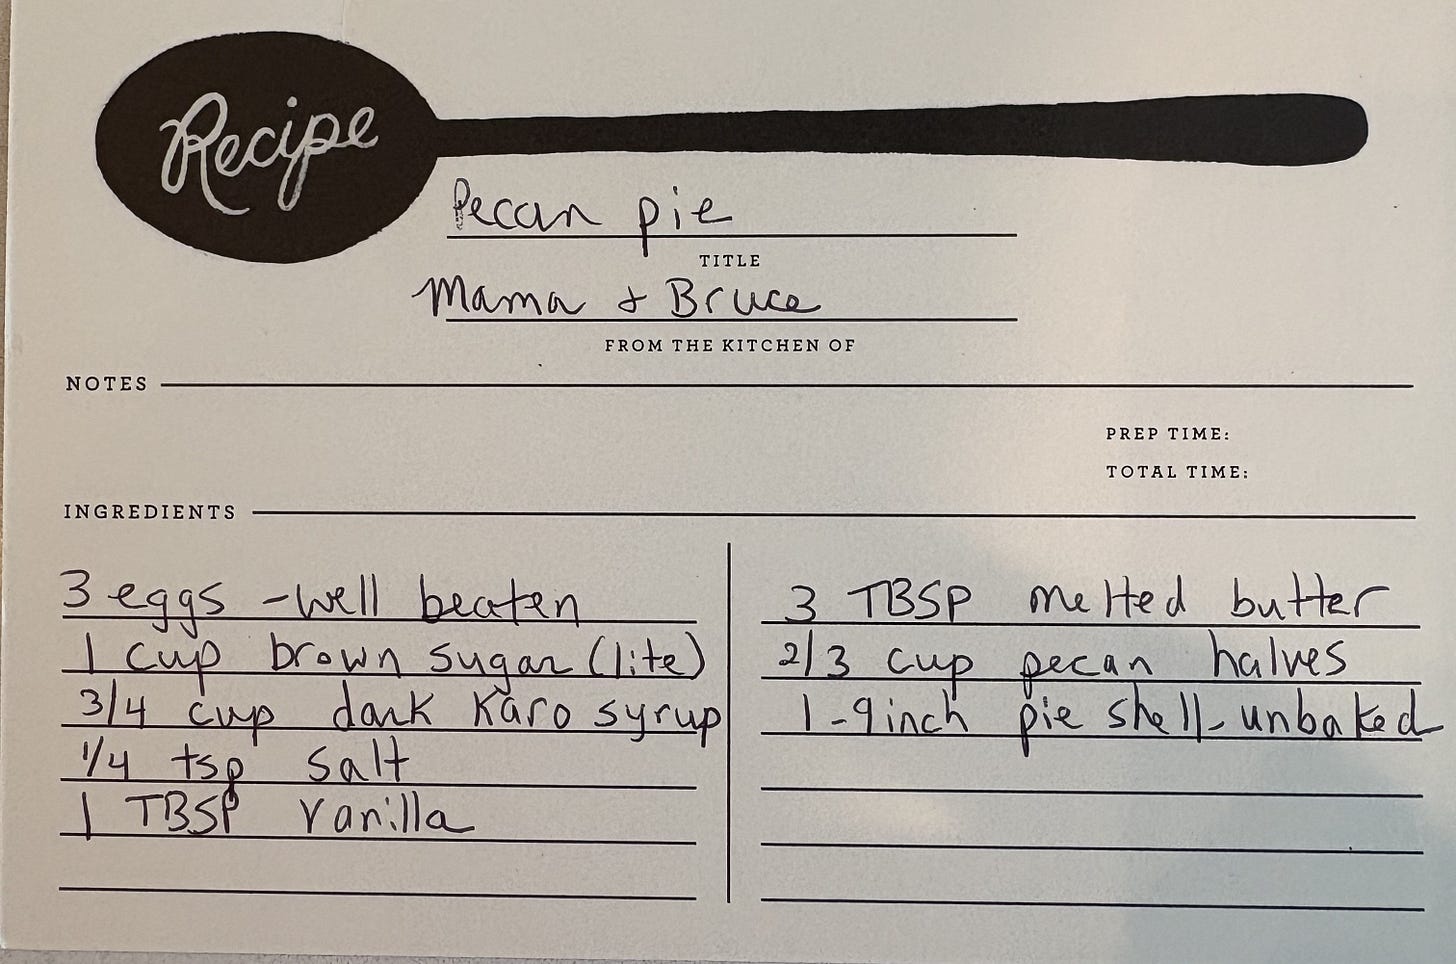 Recipe
Pecan pie
TITLE
Mama + Bruce
FROM THE KITCHEN OF
NOTES
PREP TIME:
TOTAL TIME:
INGREDIENTS
3 eggs - well beaten
1 cup brown sugar (lite)
3/4 cup dark Karo syrup
1/4 tsp salt
1 TBSP vanilla
3 TBSP melted butter
2/3 cup pecan halves
1 - 9 inch pie shell - unbaked